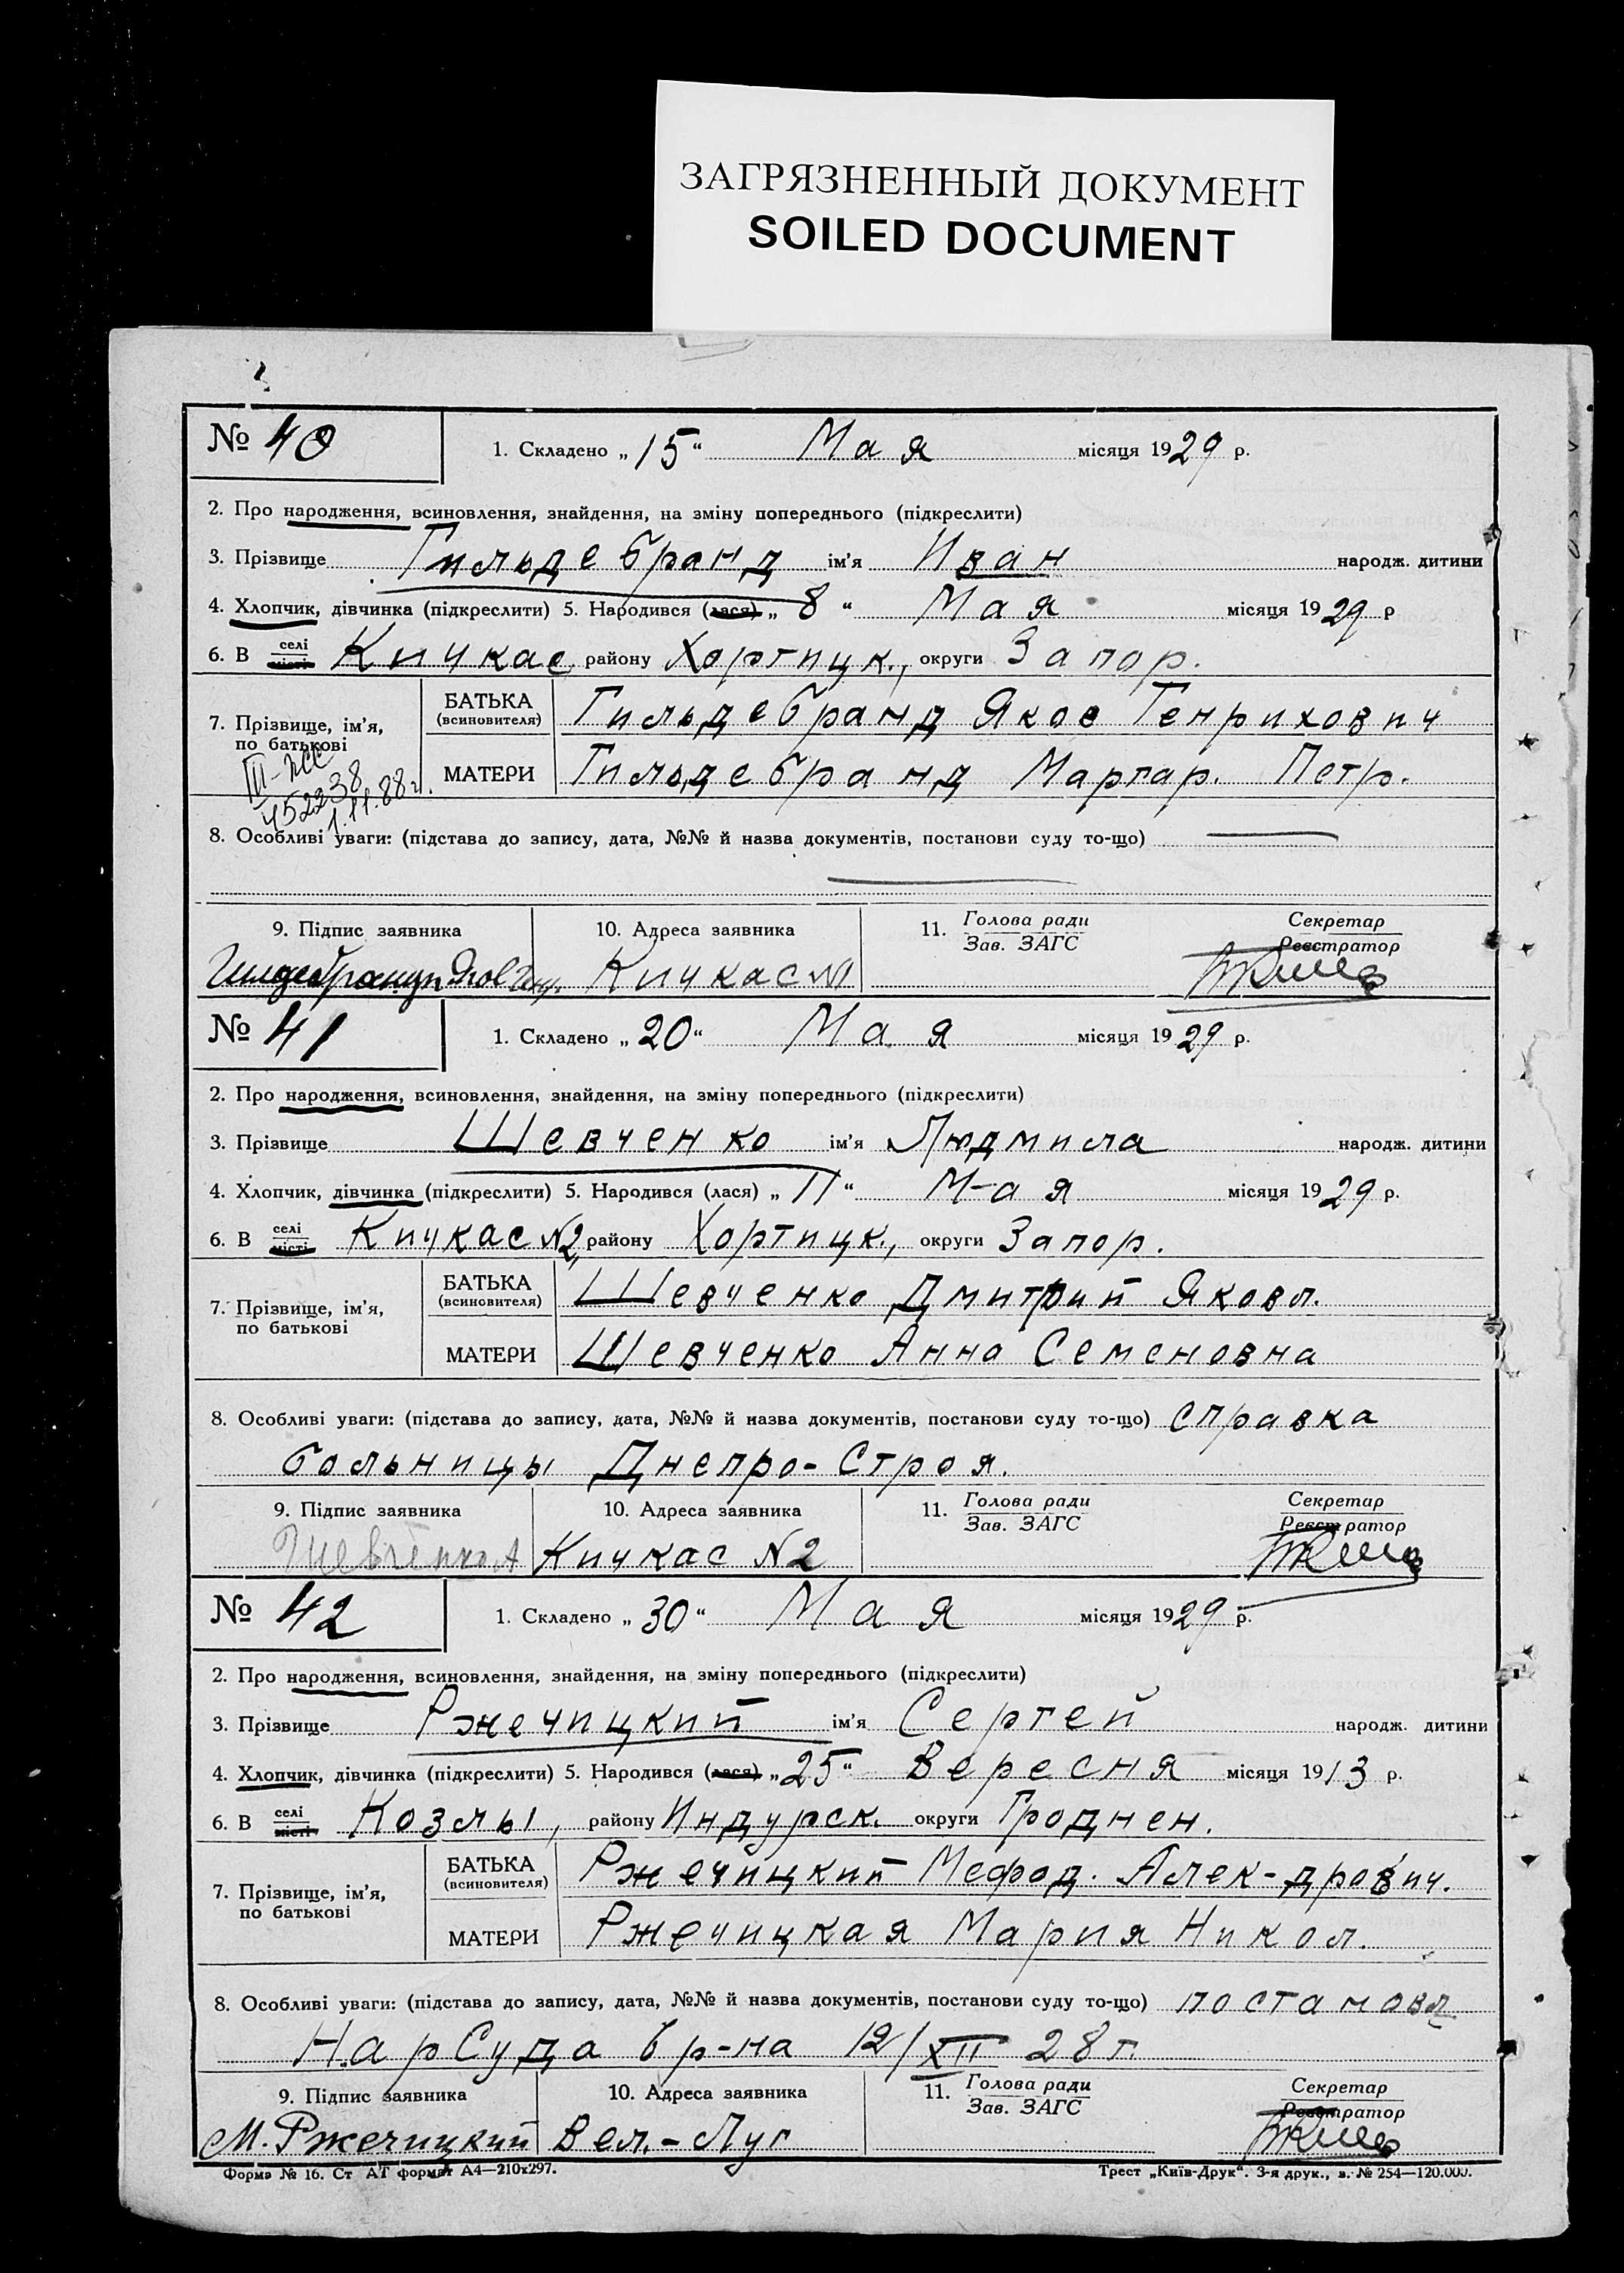 ЗАГРЯЗНЕННЫЙ ДОКУМЕНТ
SOILED DOCUMENT
№ 40 1. Складено „15“ Мая місяця 1929 р.
2. Про народження, всиновлення, знайдення, на зміну попереднього (підкреслити)
3. Прізвище Гильдебранд ім'я Иван народж. дитини
4. Хлопчик, дівчинка (підкреслити) 5. Народився (лася) „8“ Мая місяця 1929 р
6. В селі місті Кичкас району Хортицк., округи Запор.
7. Прізвище, ім'я, по батькові
БАТЬКА (всиновителя) Гильдебранд Яков Генрихович
МАТЕРИ Гильдебранд Маргар. Петр.
452238
1.11.88 г.
8. Особливі уваги: (підстава до запису, дата, №№ й назва документів, постанови суду то-що)
9. Підпис заявника 10. Адреса заявника 11. Голова ради Зав. ЗАГС Секретар Реєстратор
Кичкас №1
№ 41 1. Складено „20“ Мая місяця 1929 р.
2. Про народження, всиновлення, знайдення, на зміну попереднього (підкреслити)
3. Прізвище Шевченко ім'я Людмила народж. дитини
4. Хлопчик, дівчинка (підкреслити) 5. Народився (лася) „11“ Мая місяця 1929 р.
6. В селі місті Кичкас №2, району Хортицк., округи Запор.
7. Прізвище, ім'я, по батькові
БАТЬКА (всиновителя) Шевченко Дмитрий Яковл.
МАТЕРИ Шевченко Анна Семеновна
8. Особливі уваги: (підстава до запису, дата, №№ й назва документів, постанови суду то-що) справка
больницы Днепро-Строя.
9. Підпис заявника 10. Адреса заявника 11. Голова ради Зав. ЗАГС Секретар Реєстратор
Шевченко А Кичкас №2
№ 42 1. Складено „30“ Мая місяця 1929 р.
2. Про народження, всиновлення, знайдення, на зміну попереднього (підкреслити)
3. Прізвище Ржечицкий ім'я Сергей народж. дитини
4. Хлопчик, дівчинка (підкреслити) 5. Народився (лася) „25“ Вересня місяця 1913 р.
6. В селі місті Козлы, району Индурск. округи Гроднен.
7. Прізвище, ім'я, по батькові
БАТЬКА (всиновителя) Ржечицкий Мефод. Алек-дрович.
МАТЕРИ Ржечицкая Мария Никол.
8. Особливі уваги: (підстава до запису, дата, №№ й назва документів, постанови суду то-що) постановл
НарСуда 6 р-на 12/XII 28 г.
9. Підпис заявника 10. Адреса заявника 11. Голова ради Зав. ЗАГС Секретар Реєстратор
М. Ржечицкий Вел.-Луг
Форма № 16. Ст АТ формат А4—210x297. Трест „Київ-Друк“. 3-я друк., з. № 254—120.000.